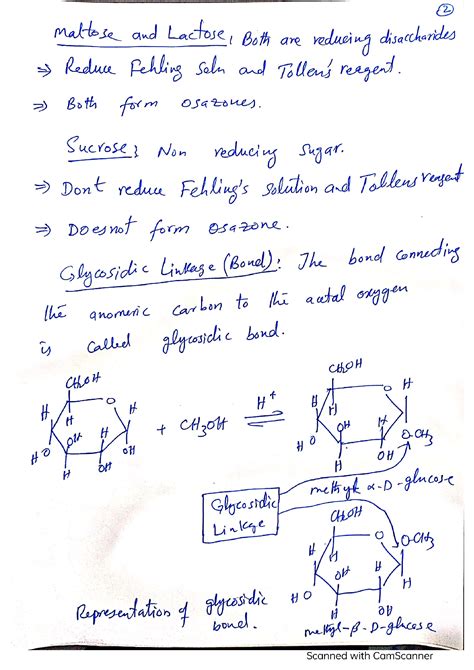 2
Maltose and Lactose, Both are reducing disaccharides
⇒ Reduce Fehling Soln and Tollen's reagent.
⇒ Both form osazones.
Sucrose; Non reducing sugar.
⇒ Dont reduce Fehling's solution and Tollens reagent
⇒ Does not form osazone.
Glycosidic Linkage (Bond): The bond connecting
the anomeric carbon to the acetal oxygen
is called glycosidic bond.
CH2OH
H O H
H
OH H
H O OH
H OH
+ CH3OH
H+
⇌
CH2OH
H O H
H
OH H
H O O-CH3
H OH
methyl α-D-glucose
Glycosidic
Linkage
CH2OH
H O O-CH3
H
OH H
H O H
H OH
methyl-β-D-glucose
Representation of glycosidic
bond.
Scanned with CamScanner